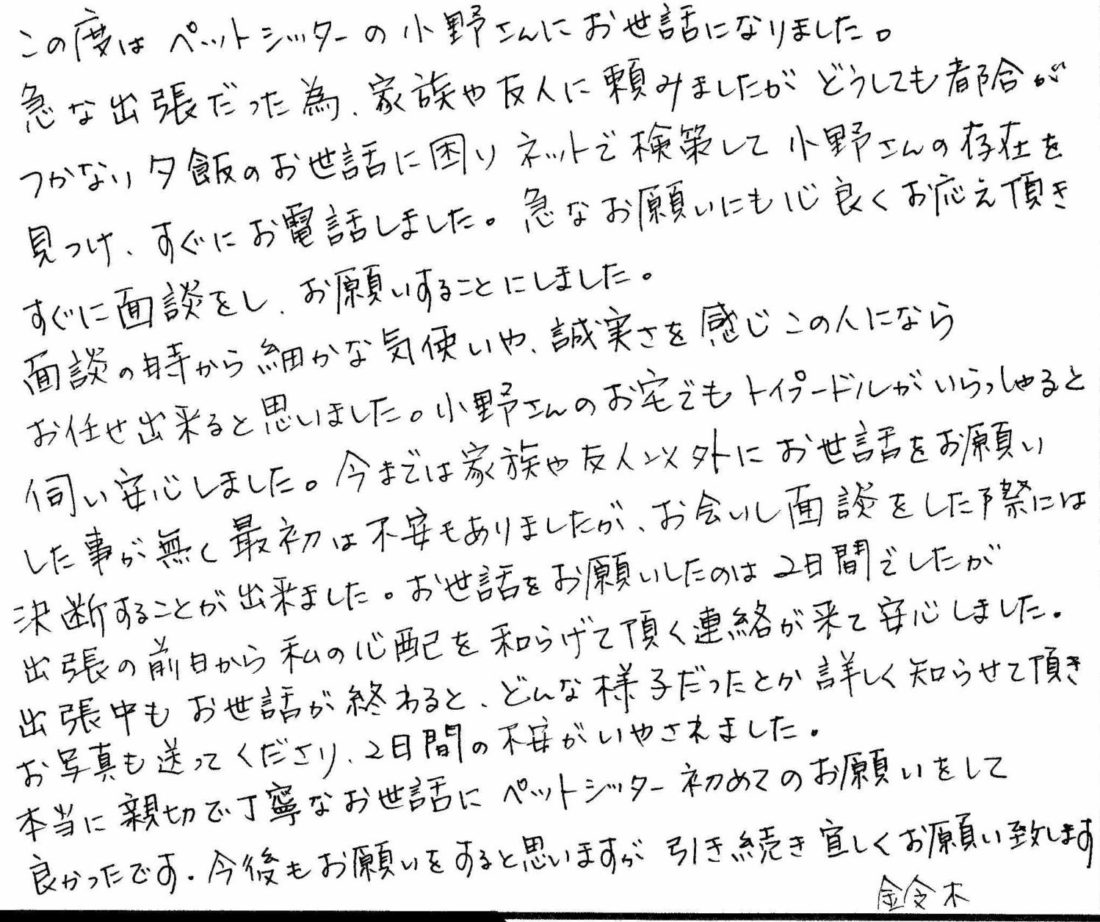 この度は ペットシッターの小野さんにお世話になりました。
急な出張だった為、家族や友人に頼みましたが どうしても都合が
つかない夕飯のお世話に困り ネットで検策して 小野さんの存在を
見つけ、すぐにお電話しました。急なお願いにも心良くお応え頂き
すぐに面談をし、お願いすることにしました。
面談の時から細かな気使いや、誠実さを感じこの人になら
お任せ出来ると思いました。小野さんのお宅でもトイプードルがいらっしゃると
伺い安心しました。今までは家族や友人以外にお世話をお願い
した事が無く最初は不安もありましたが、お会いし面談をした際には
決断することが出来ました。お世話をお願いしたのは2日間でしたが
出張の前日から私の心配を和らげて頂く連絡が来て安心しました。
出張中もお世話が終わると、どんな様子だったとか詳しく知らせて頂き
お写真も送ってくださり、2日間の不安がいやされました。
本当に親切で丁寧なお世話に ペットシッター初めてのお願いをして
良かったです。今後もお願いをすると思いますが 引き続き宜しくお願い致します
鈴木